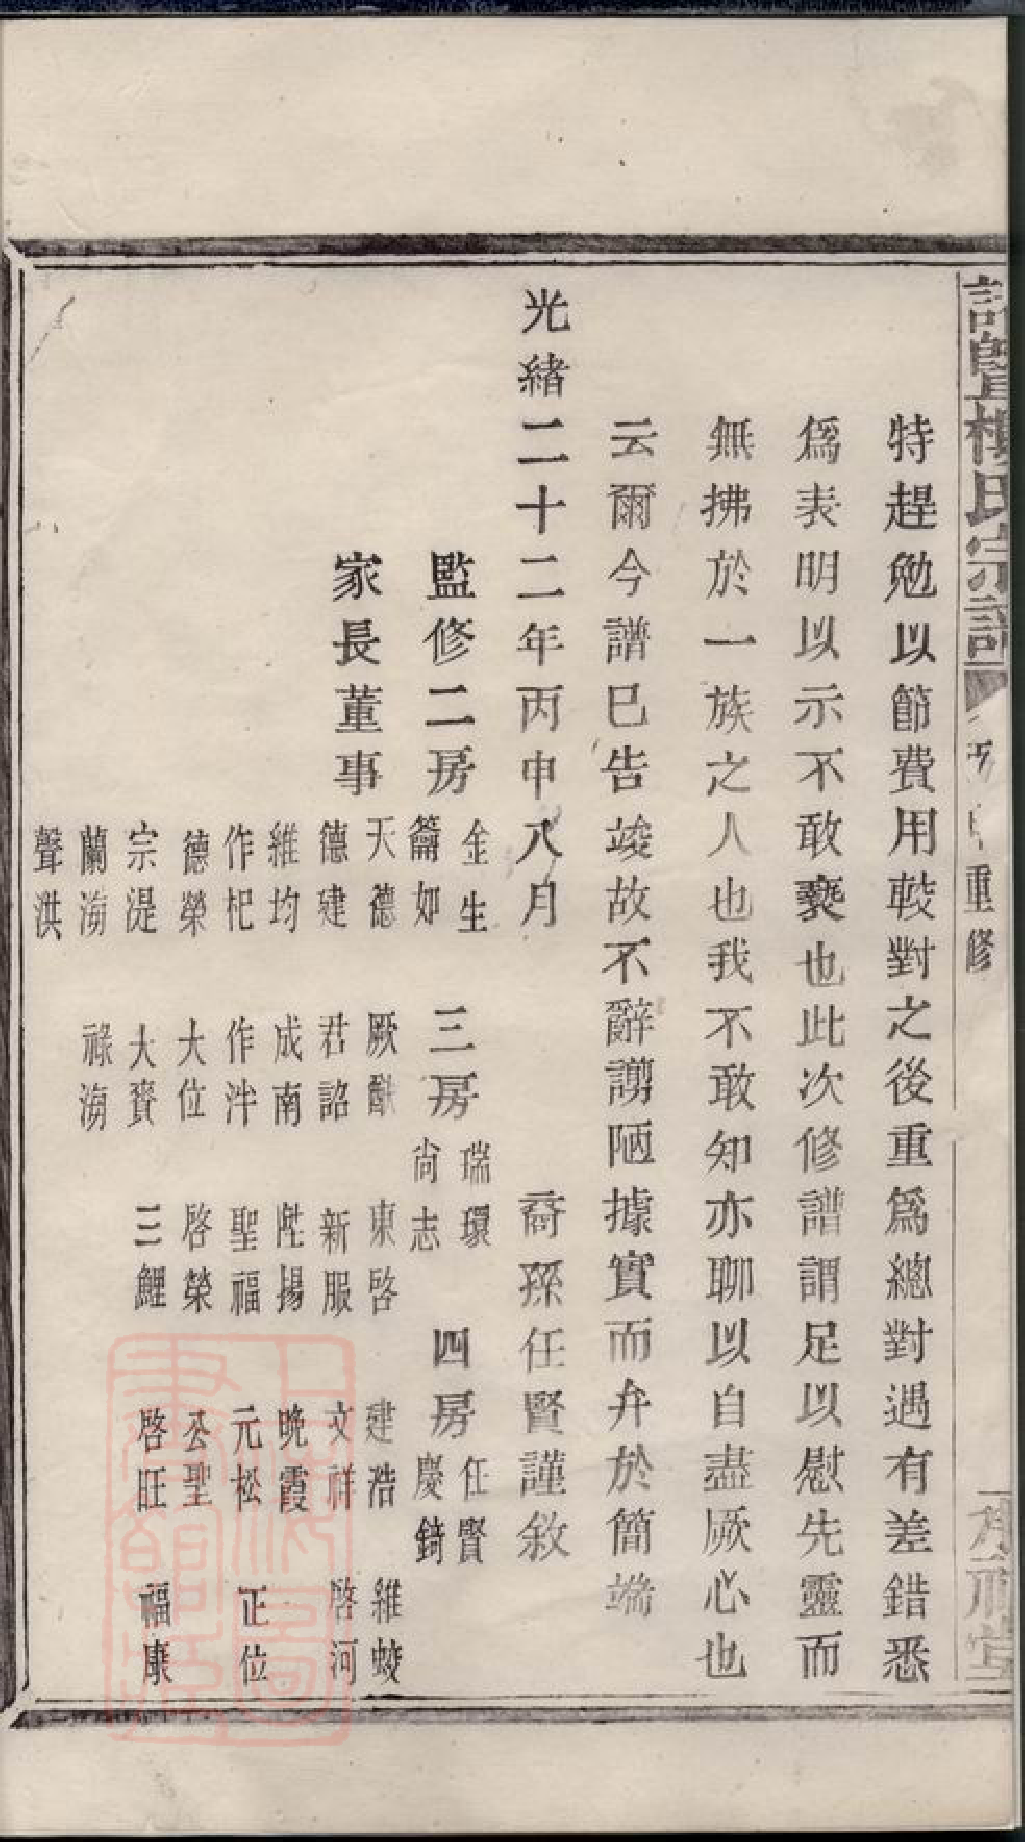 特趕勉以節費用較對之後重爲總對遇有差錯悉
爲表明以示不敢褻也此次修譜謂足以慰先靈而
無拂於一族之人也我不敢知亦聊以自盡厥心也
云爾今譜已告竣故不辭謭陋據實而弁於簡端
光緒二十二年丙申八月 裔孫任賢謹敘
監修二房 金生 籥如 三房 瑞環 尚志 四房 任賢 慶錡
家長董事 天德 厥猷 東啓 建浩 維蛟
德建 君詔 新服 文祥 啓河
維均 成南 陞揚 晚霞
作杞 作泮 聖福 元松 正位
德榮 大位 啓榮 公聖
宗湜 大賚 三鯉 啓旺 福康
蘭海 祿海
聲洪
重修